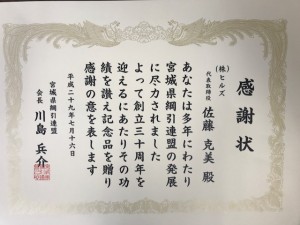 感謝状
（株）ヒルズ
代表取締役
佐藤 克美 殿
あなたは多年にわたり
宮城県綱引連盟の発展
に尽力されました
よって創立三十周年を
迎えるにあたりその功
績を讃え記念品を贈り
感謝の意を表します
平成二十九年七月十六日
宮城県綱引連盟
会長 川島 兵介